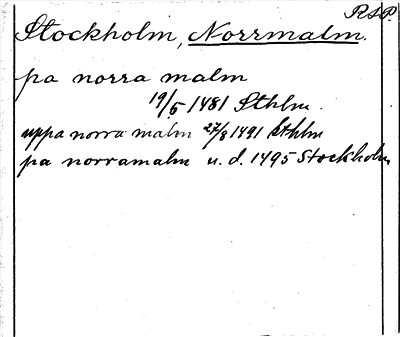 R.S.P.
Stockholm, Norrmalm.
pa norra malm
19/5 1481 Sthlm.
uppa norra malm 27/8 1491 Sthlm
pa norramalm u. d. 1495 Stockholm